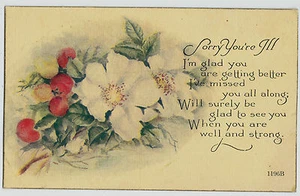 Sorry You're Ill
I'm glad you
are getting better
I've missed
you all along;
Will surely be
glad to see you
When you are
well and strong.
1196B